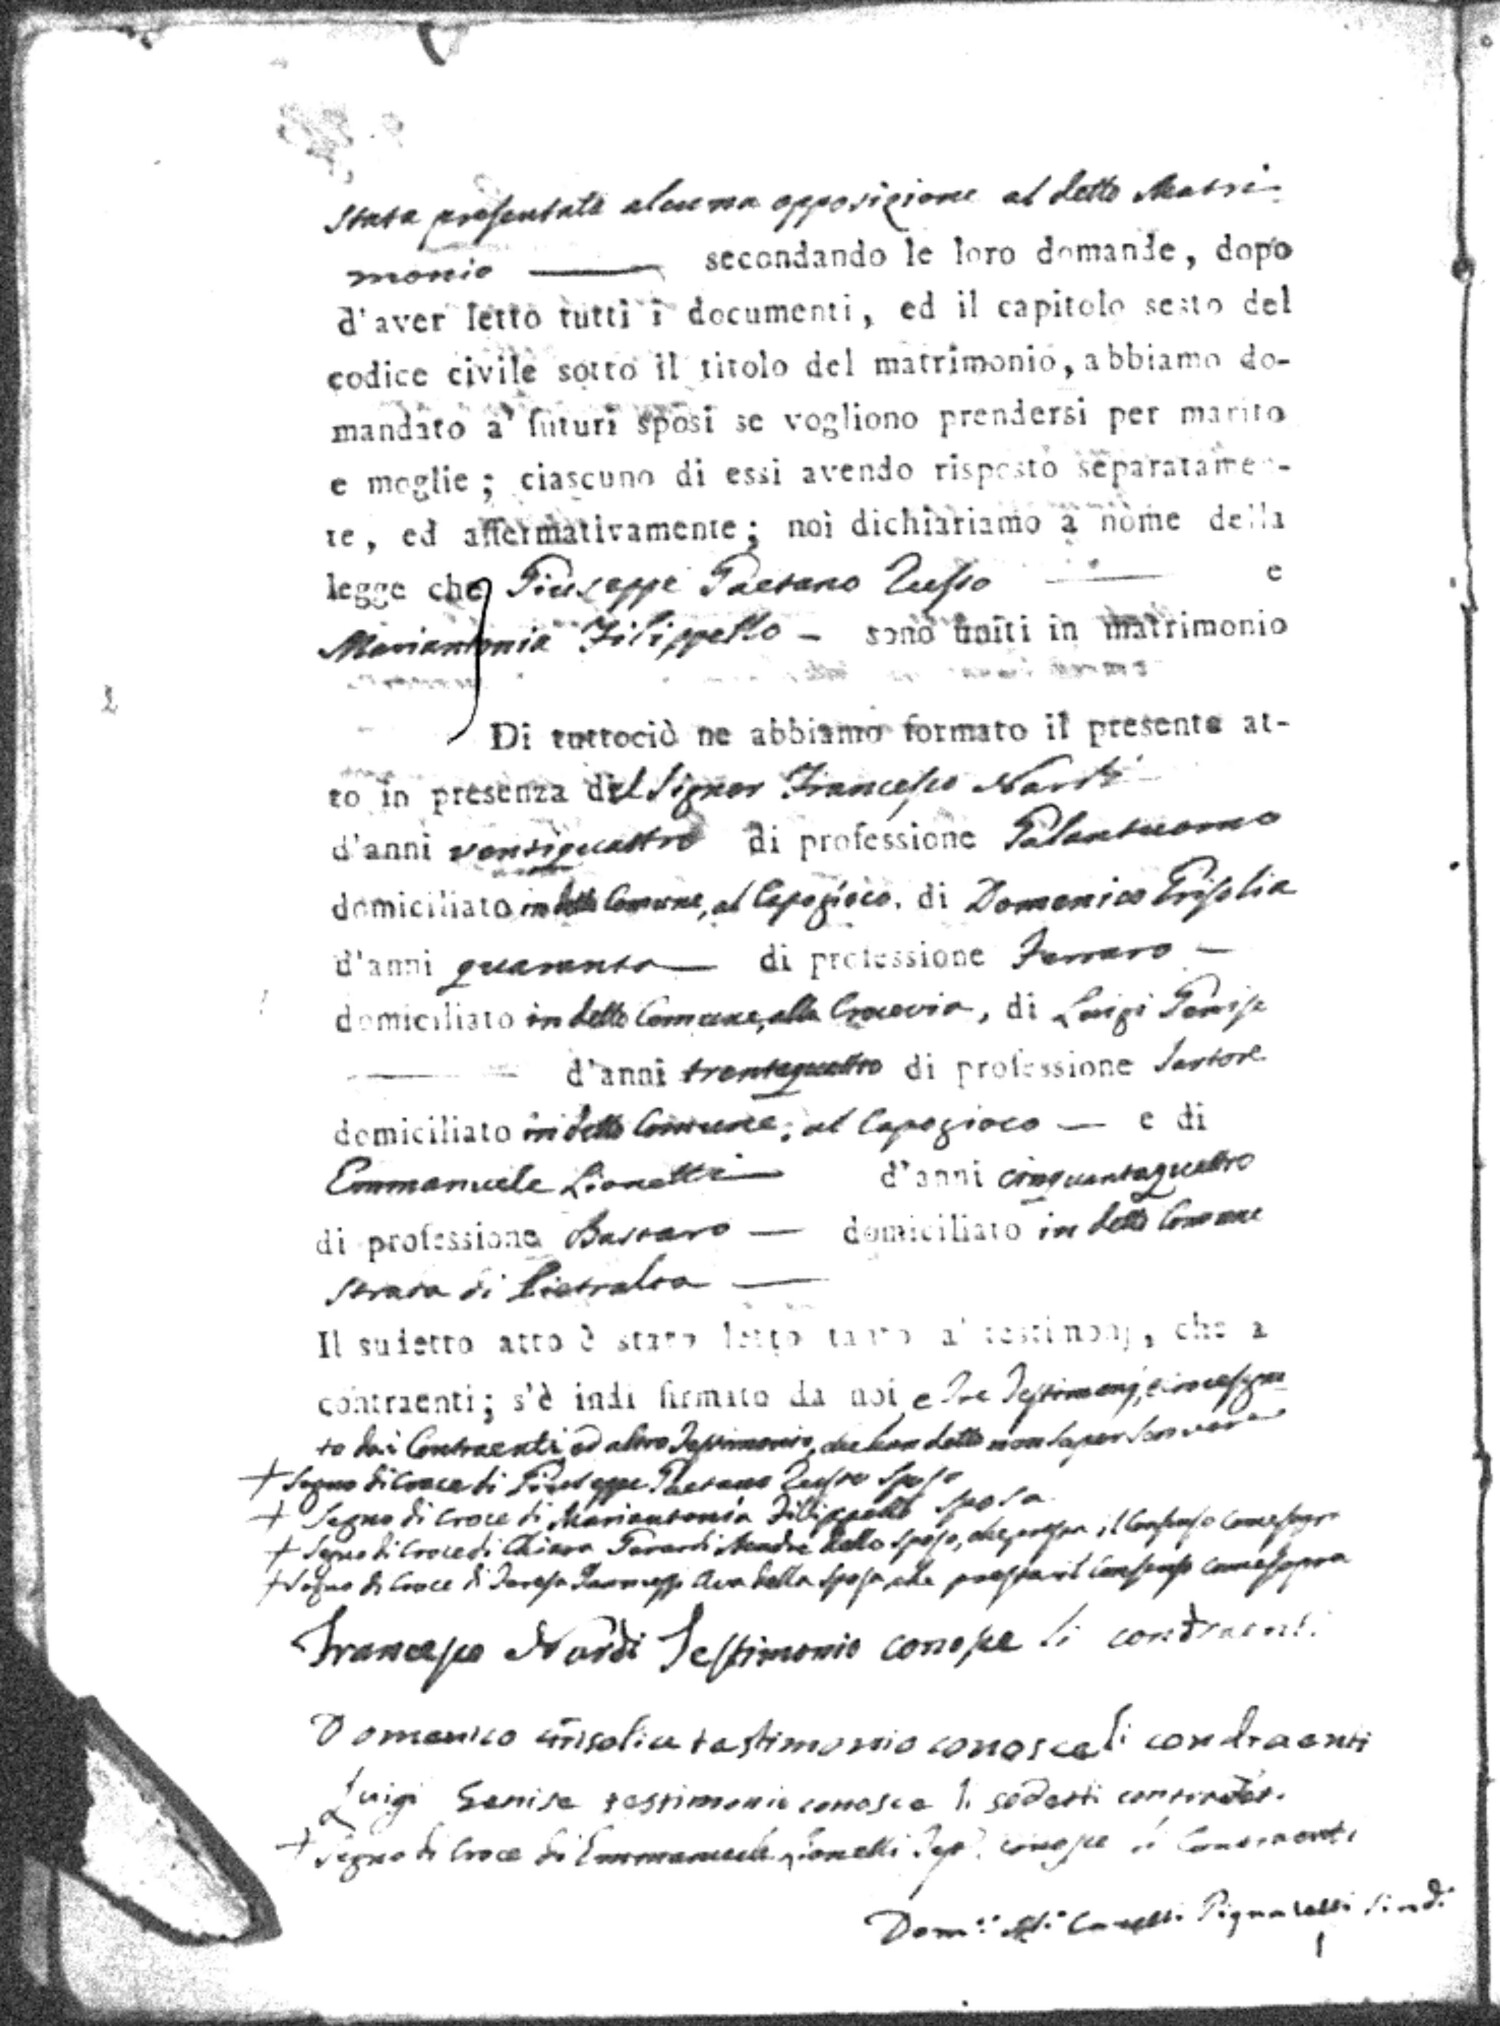 stata presentata alcuna opposizione al detto Matri-
monio secondando le loro domande, dopo
d'aver letto tutti i documenti, ed il capitolo sesto del
codice civile sotto il titolo del matrimonio, abbiamo do-
mandato a' futuri sposi se vogliono prendersi per marito
e moglie; ciascuno di essi avendo risposto separatamen-
te, ed affermativamente; noi dichiariamo a nome della
legge che Giuseppe Gaetano Russo e
Mariantonia Filippello - sono uniti in matrimonio
Di tuttociò ne abbiamo formato il presente at-
to in presenza del Signor Francesco Nardi
d'anni ventiquattro di professione Galantuomo
domiciliato in detto Comune, al Capogioco, di Domenico Grisolia
d'anni quaranta di professione Ferraro
domiciliato in detto Comune, alla Crocevia, di Luigi Genise
d'anni trentaquattro di professione Sartore
domiciliato in detto Comune, al Capogioco e di
Emmanuele Lionetti d'anni cinquantaquattro
di professione Bastaro domiciliato in detto Comune
strada di Pietralta
Il sudetto atto è stato letto tanto a' testimonj, che a
contraenti; s'è indi firmato da noi, e tre Testimonj, e crocesegna
to dai Contraenti ed altro Testimonio, che han detto non saper scrivere
+ Segno di Croce di Giuseppe Gaetano Russo sposo
+ Segno di Croce di Mariantonia Filippello sposa
+ Segno di Croce di Chiara Madre dello sposo, che presta il Consenso come sopra
+ Segno di Croce di Teresa Ava della sposa che presta il Consenso come sopra
Francesco Nardi Testimonio conosce li contraenti
Domenico Grisolia testimonio conosce li condraenti
Luigi Genise testimonio conosce li sodetti contraenti
+ Segno di Croce di Emmanuele Lionetti conosce li Contraenti
Dom.co Pignatelli Sind.